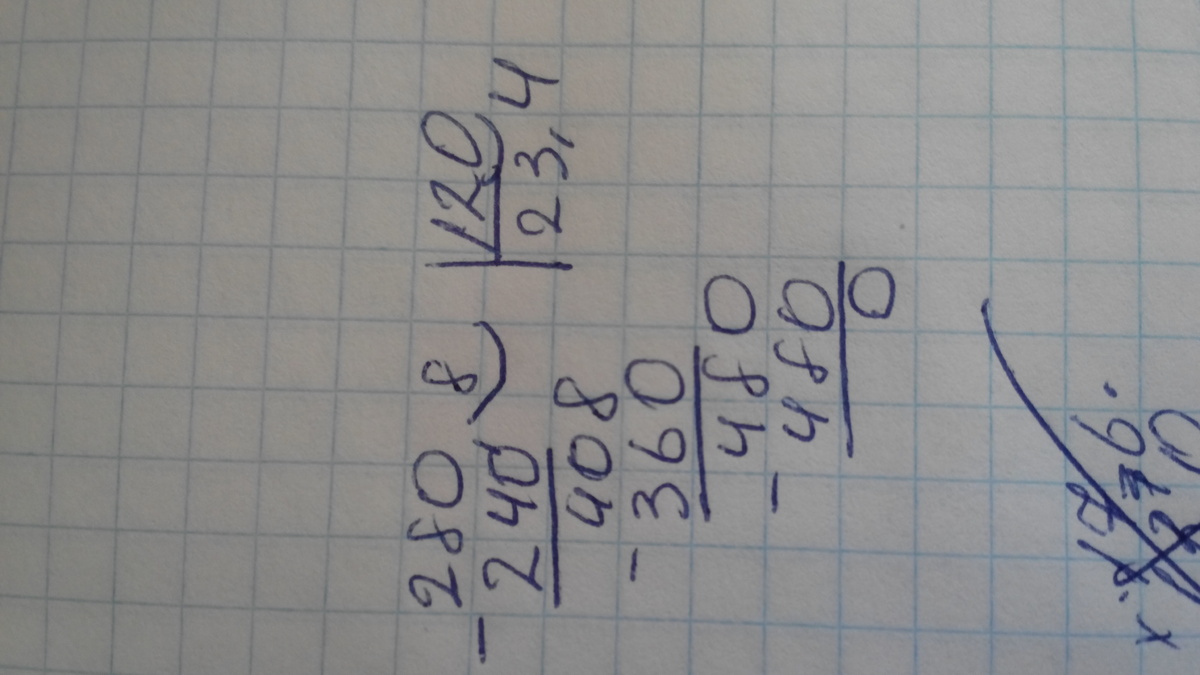 280 8 | 120
- 240 23,4
408
- 360
480
- 480
0